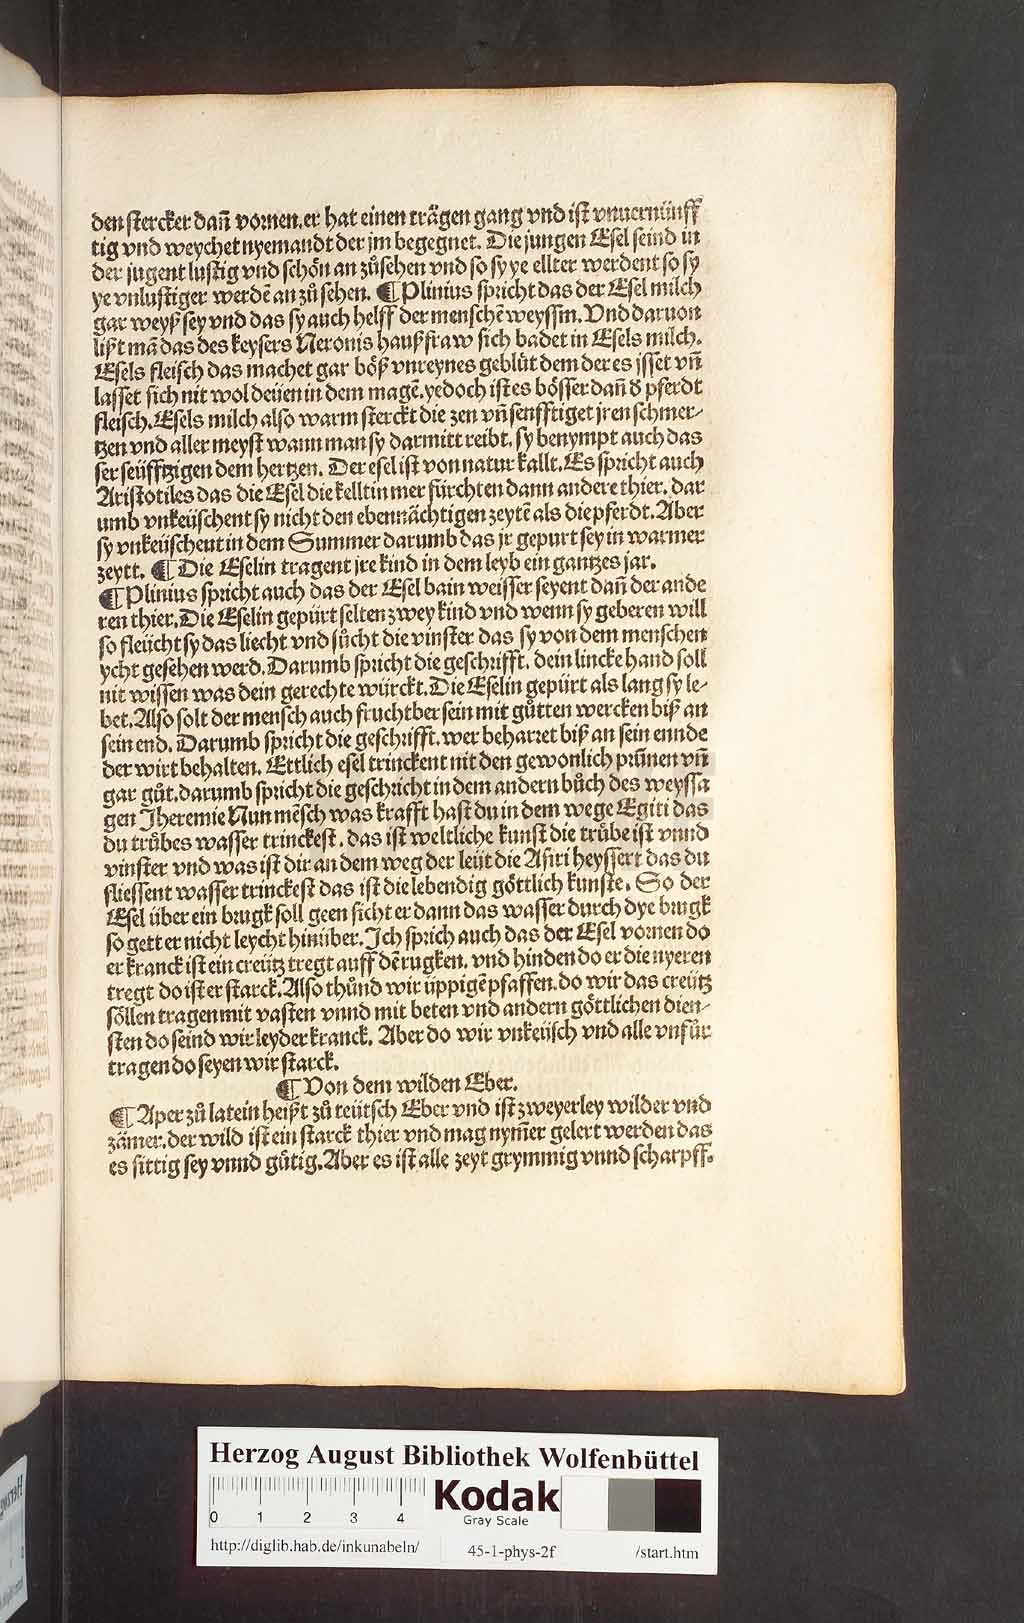 den stercker dañ vornen. er hat einen trågen gang vnd ist vnuernünff
tig vnd weychet nyemandt der jm begegnet. Die jungen Esel seind in
der jugent lustig vnd schön an zůsehen vnd so sy ye ellter werdent so sy
ye vnlustiger werdē an zů sehen. ¶ Plinius spricht das der Esel milch
gar weyß sey vnd das sy auch helff der menschē weyssin. Vnd daruon
lißt mā das des keysers Neronis haußfraw sich badet in Esels milch.
Esels fleisch das machet gar böß vnreynes geblůt dem der es jsset vñ
lasset sich nit wol deüen in dem magē. yedoch ist es bösser dañ d pferdt
fleisch. Esels milch also warm sterckt die zen vñ senfftiget jren schmer-
tzen vnd aller meyst wann man sy darmitt reibt. sy benympt auch das
ser seüfftzigen dem hertzen. Der esel ist von natur kallt. Es spricht auch
Aristotiles das die Esel die kellt in mer fürchten dann andere thier. dar
umb vnkeüschent sy nicht den ebennächtigen zeytē als die pferdt. Aber
sy vnkeüschent in dem Summer darumb das jr gepurt sey in warmer
zeytt. ¶ Die Eselin tragent jre kind in dem leyb ein gantzes jar.
¶ Plinius spricht auch das der Esel bain weisser seyent dañ der ande
ren thier. Die Eselin gepürt selten zwey kind vnd wenn sy geberen will
so fleücht sy das liecht vnd sůcht die vinster das sy von dem menschen
ycht gesehen werd. Darumb spricht die geschrifft. dein lincke hand soll
nit wissen was dein gerechte würckt. Die Eselin gepürt als lang sy le-
bet. Also solt der mensch auch fruchtber sein mit gůtten wercken biß an
sein end. Darumb spricht die geschrifft. wer beharret biß an sein ennde
der wirt behalten. Ettlich esel trinckent nit den gewonlich prünen vñ
gar gůt. darumb spricht die geschricht in dem andern bůch des weyssa
gen Jheremie Nun mēsch was krafft hast du in dem wege Egiti das
du trůbes wasser trinckest. das ist weltliche kunst die trůbe ist vnnd
vinster vnd was ist dir an dem weg der leüt die Asiri heyssert das du
fliessent wasser trinckest das ist die lebendig göttlich kunste. So der
Esel über ein brugk soll geen sicht er dann das wasser durch dye brugk
so gett er nicht leycht hinüber. Ich sprich auch das der Esel vornen do
er kranck ist ein creütz tregt auff dē rugken. vnd hinden do er die nyeren
tregt do ist er starck. Also thůnd wir üppigē pfaffen. do wir das creütz
söllen tragen mit vasten vnnd mit beten vnd andern göttlichen dien-
sten do seind wir leyder kranck. Aber do wir vnkeüsch vnd alle vnfůr
tragen do seyen wir starck.
¶ Von dem wilden Eber.
¶ Aper zů latein heißt zů teütsch Eber vnd ist zweyerley wilder vnd
zämer. der wild ist ein starck thier vnd mag nym̄er gelert werden das
es sittig sey vnnd gütig. Aber es ist alle zeyt grymmig vnnd scharpff.
Herzog August Bibliothek Wolfenbüttel
0 1 2 3 4
Kodak
Gray Scale
http://diglib.hab.de/inkunabeln/ 45-1-phys-2f /start.htm